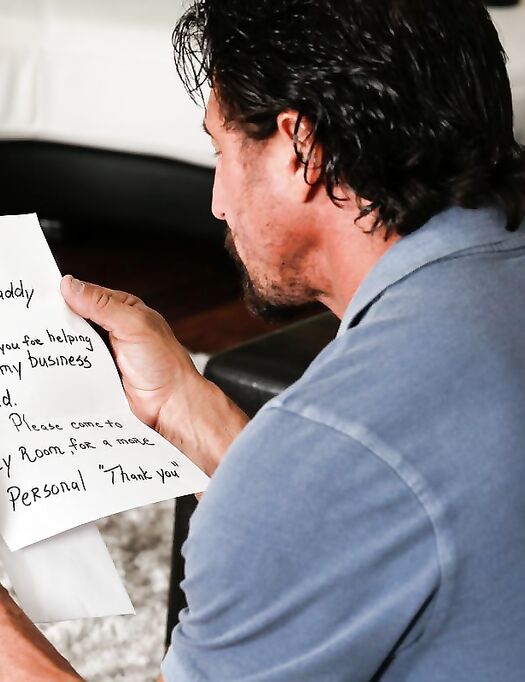 addy
you for helping
my business
d.
Please come to
y Room, for a more
Personal "Thank you"